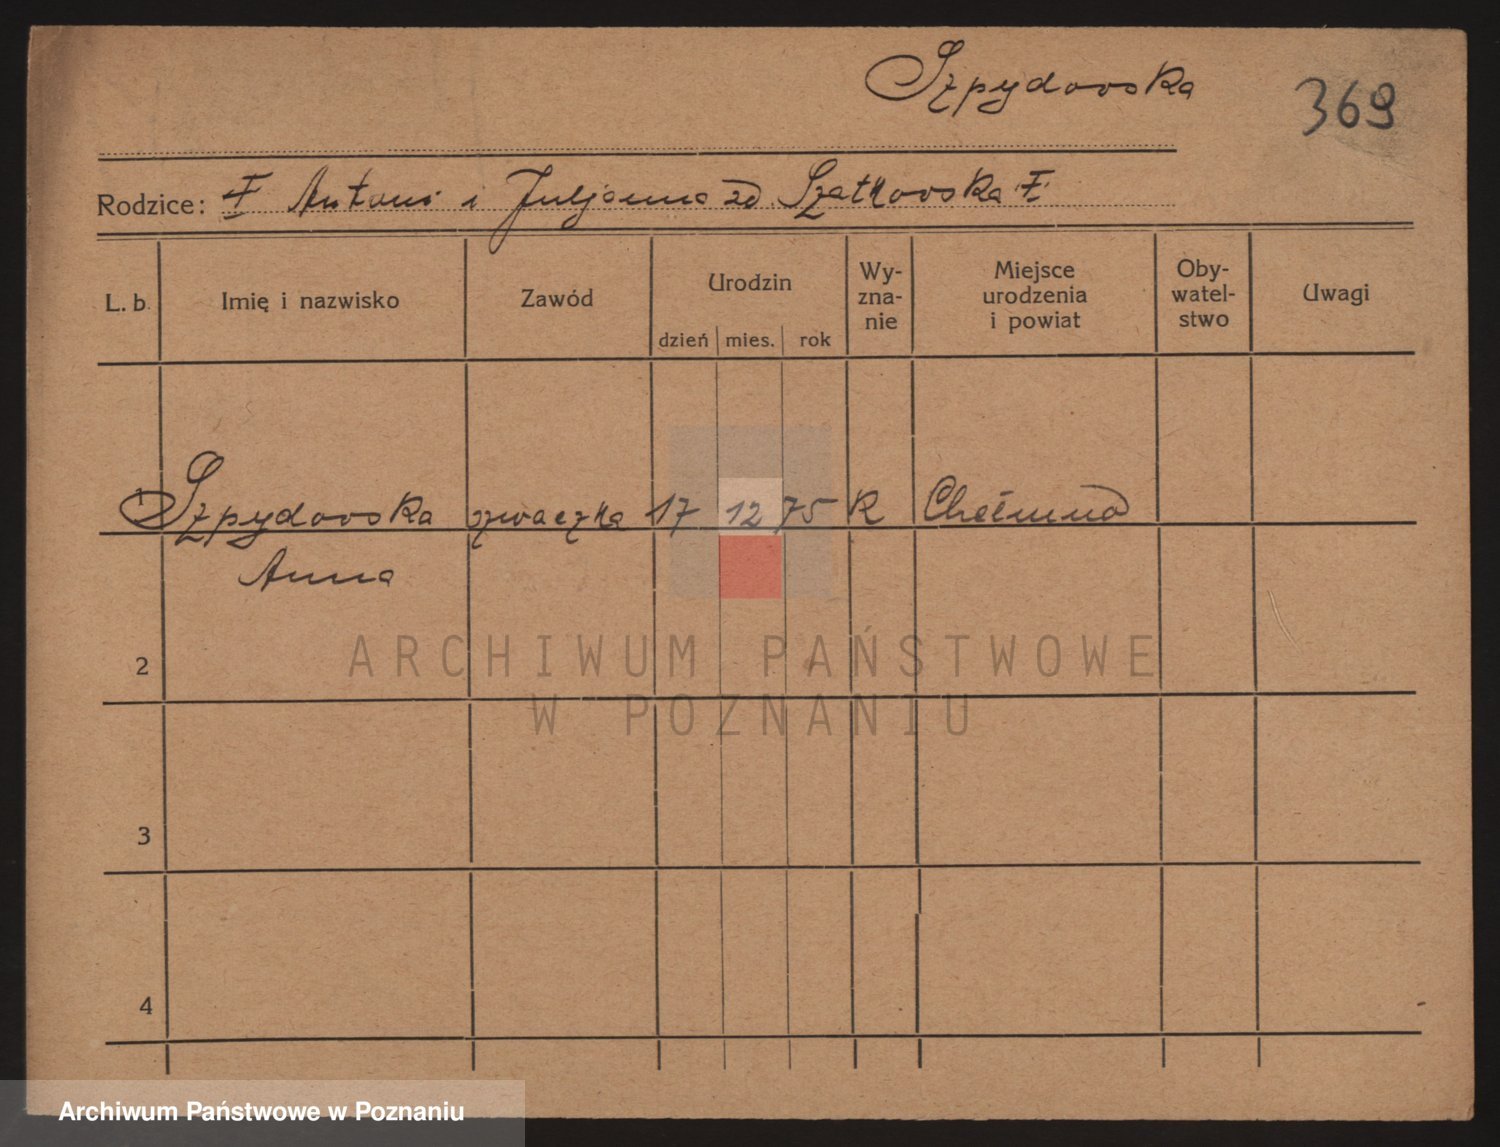 Szpydowska
369
Rodzice: † Antoni i Juljanna zd. Szatkowska †
L. b. Imię i nazwisko Zawód Urodzin dzień mies. rok Wy-zna-nie Miejsce urodzenia i powiat Oby-watel-stwo Uwagi
1 Szpydowska szwaczka 17 12 75 R
Anna
2
ARCHIWUM PAŃSTWOWE
W POZNANIU
3
4
Archiwum Państwowe w Poznaniu